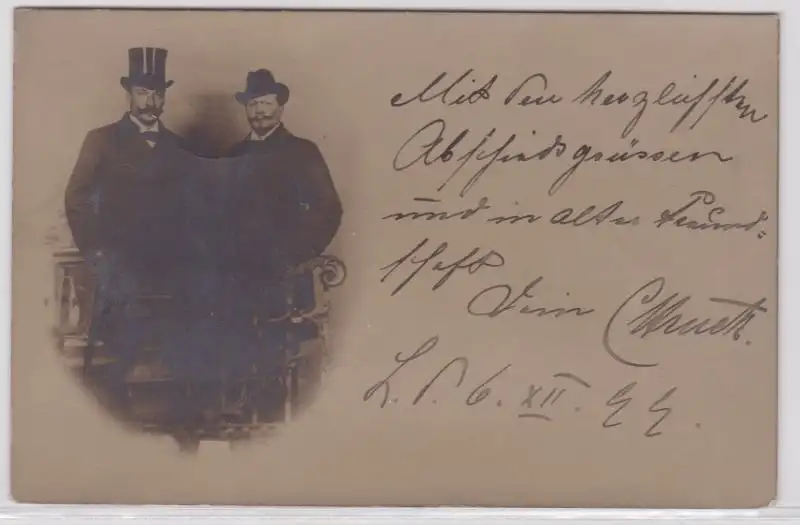 Mit den herzlichsten
Abschiedsgrüssen
und in alter Freund-
schaft
Dein
L. d. 6. XII. 99.